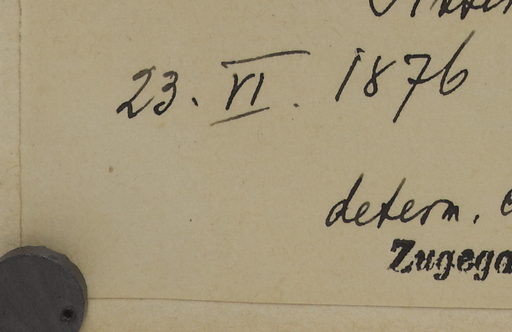 23. VI. 1876
determ.
Zugega